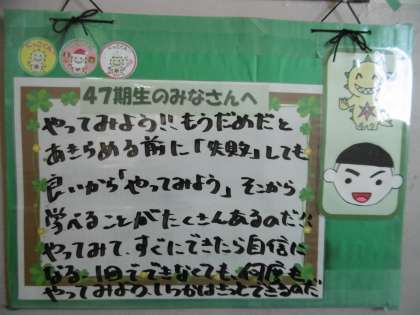 47期生のみなさんへ
やってみよう!!もうだめだと
あきらめる前に「失敗」しても
良いから「やってみよう」そこから
学べることがたくさんあるのだ!!
やってみて、すぐにできたら自信に
なる、1回でできなくても、何度も
やってみよう。いつかはきっとできるのだ